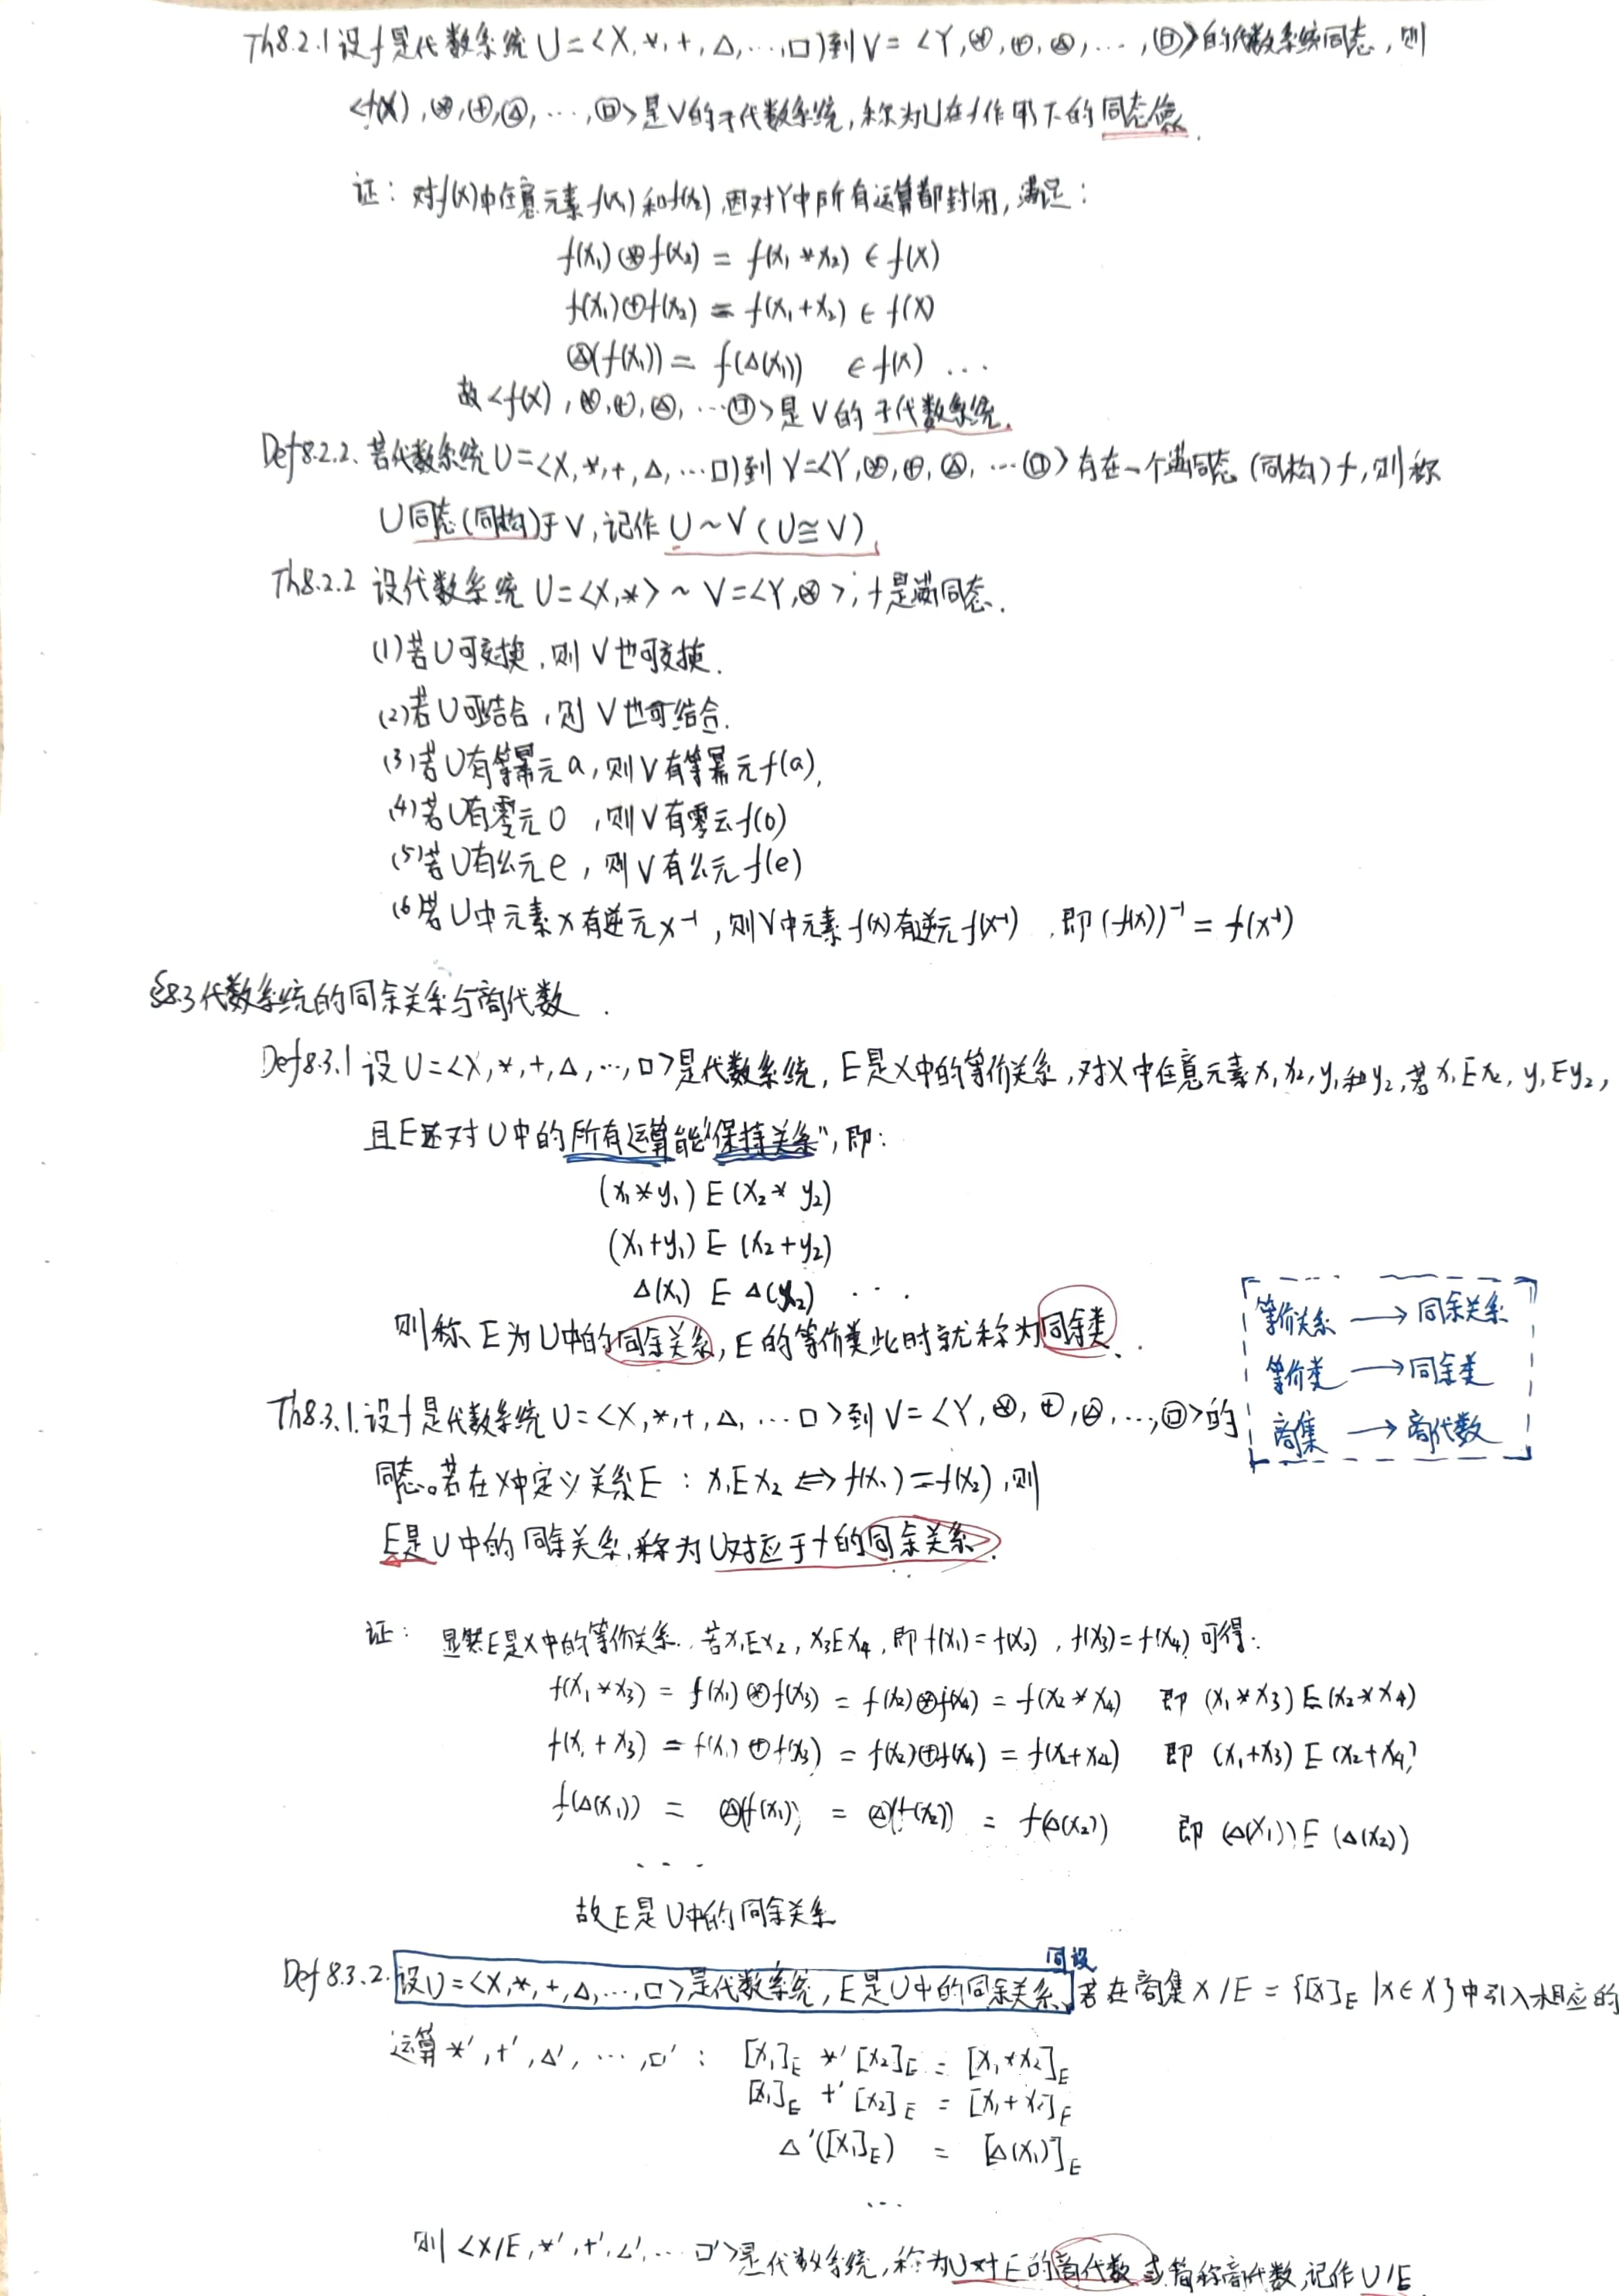 Th8.2.1 设f是代数系统 U=<X,*,+,△,…,□>到V=<Y,⊛,⊕,△⃝,…,□⃝>的代数系统同态,则
<f(X),⊛,⊕,△⃝,…,□⃝>是V的子代数系统,称为U在f作用下的同态像.
证:对f(X)中任意元素f(x₁)和f(x₂),因对Y中所有运算都封闭,满足:
f(x₁)⊛f(x₂) = f(x₁*x₂) ∈ f(X)
f(x₁)⊕f(x₂) = f(x₁+x₂) ∈ f(X)
△⃝(f(x₁)) = f(△(x₁)) ∈ f(X) …
故<f(X),⊛,⊕,△⃝,…□⃝>是V的子代数系统.
Def8.2.2. 若代数系统U=<X,*,+,△,…□>到V=<Y,⊛,⊕,△⃝,…□⃝>存在一个满同态(同构)f,则称
U同态(同构)于V,记作 U~V (U≅V)
Th8.2.2 设代数系统 U=<X,*> ~ V=<Y,⊛>,f是满同态.
(1)若U可交换,则V也可交换.
(2)若U可结合,则V也可结合.
(3)若U有等幂元a,则V有等幂元f(a).
(4)若U有零元0,则V有零元f(0)
(5)若U有幺元e,则V有幺元f(e)
(6)若U中元素x有逆元x⁻¹,则V中元素f(x)有逆元f(x⁻¹),即(f(x))⁻¹=f(x⁻¹)
§8.3代数系统的同余关系与商代数.
Def8.3.1 设U=<X,*,+,△,…,□>是代数系统,E是X中的等价关系,对X中任意元素x₁,x₂,y₁和y₂,若x₁Ex₂, y₁Ey₂,
且E还对U中的所有运算能"保持关系",即:
(x₁*y₁) E (x₂*y₂)
(x₁+y₁) E (x₂+y₂)
△(x₁) E △(x₂) …
则称E为U中的同余关系,E的等价类此时就称为同余类.
等价关系 → 同余关系
等价类 → 同余类
商集 → 商代数
Th8.3.1.设f是代数系统U=<X,*,+,△,…□>到V=<Y,⊛,⊕,△⃝,…,□⃝>的
同态。若在X中定义关系E:x₁Ex₂⇔f(x₁)=f(x₂),则
E是U中的同余关系,称为U对应于f的同余关系.
证:显然E是X中的等价关系.若x₁Ex₂,x₃Ex₄,即f(x₁)=f(x₂),f(x₃)=f(x₄)可得:
f(x₁*x₃) = f(x₁)⊛f(x₃) = f(x₂)⊛f(x₄) = f(x₂*x₄) 即 (x₁*x₃)E(x₂*x₄)
f(x₁+x₃) = f(x₁)⊕f(x₃) = f(x₂)⊕f(x₄) = f(x₂+x₄) 即 (x₁+x₃)E(x₂+x₄)
f(△(x₁)) = △⃝(f(x₁)) = △⃝(f(x₂)) = f(△(x₂)) 即 (△(x₁))E(△(x₂))
…
故E是U中的同余关系
同设
Def8.3.2.设U=<X,*,+,△,…,□>是代数系统,E是U中的同余关系,若在商集X/E={[x]_E|x∈X}中引入相应的
运算*′,+′,△′,…,□′: [x₁]_E *′ [x₂]_E = [x₁*x₂]_E
[x₁]_E +′ [x₂]_E = [x₁+x₂]_E
△′([x₁]_E) = [△(x₁)]_E
…
则<X/E,*′,+′,△′,…□′>是代数系统,称为U对E的商代数或简称商代数,记作U/E